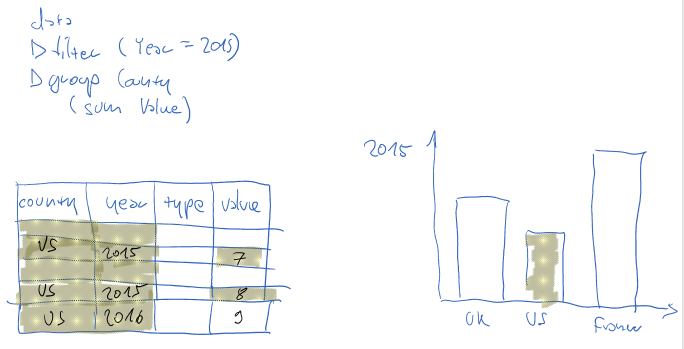 data
▷ filter (Year = 2015)
▷ group County
(sum Value)
county year type value
US 2015 7
US 2015 8
US 2016 9
2015
UK US France